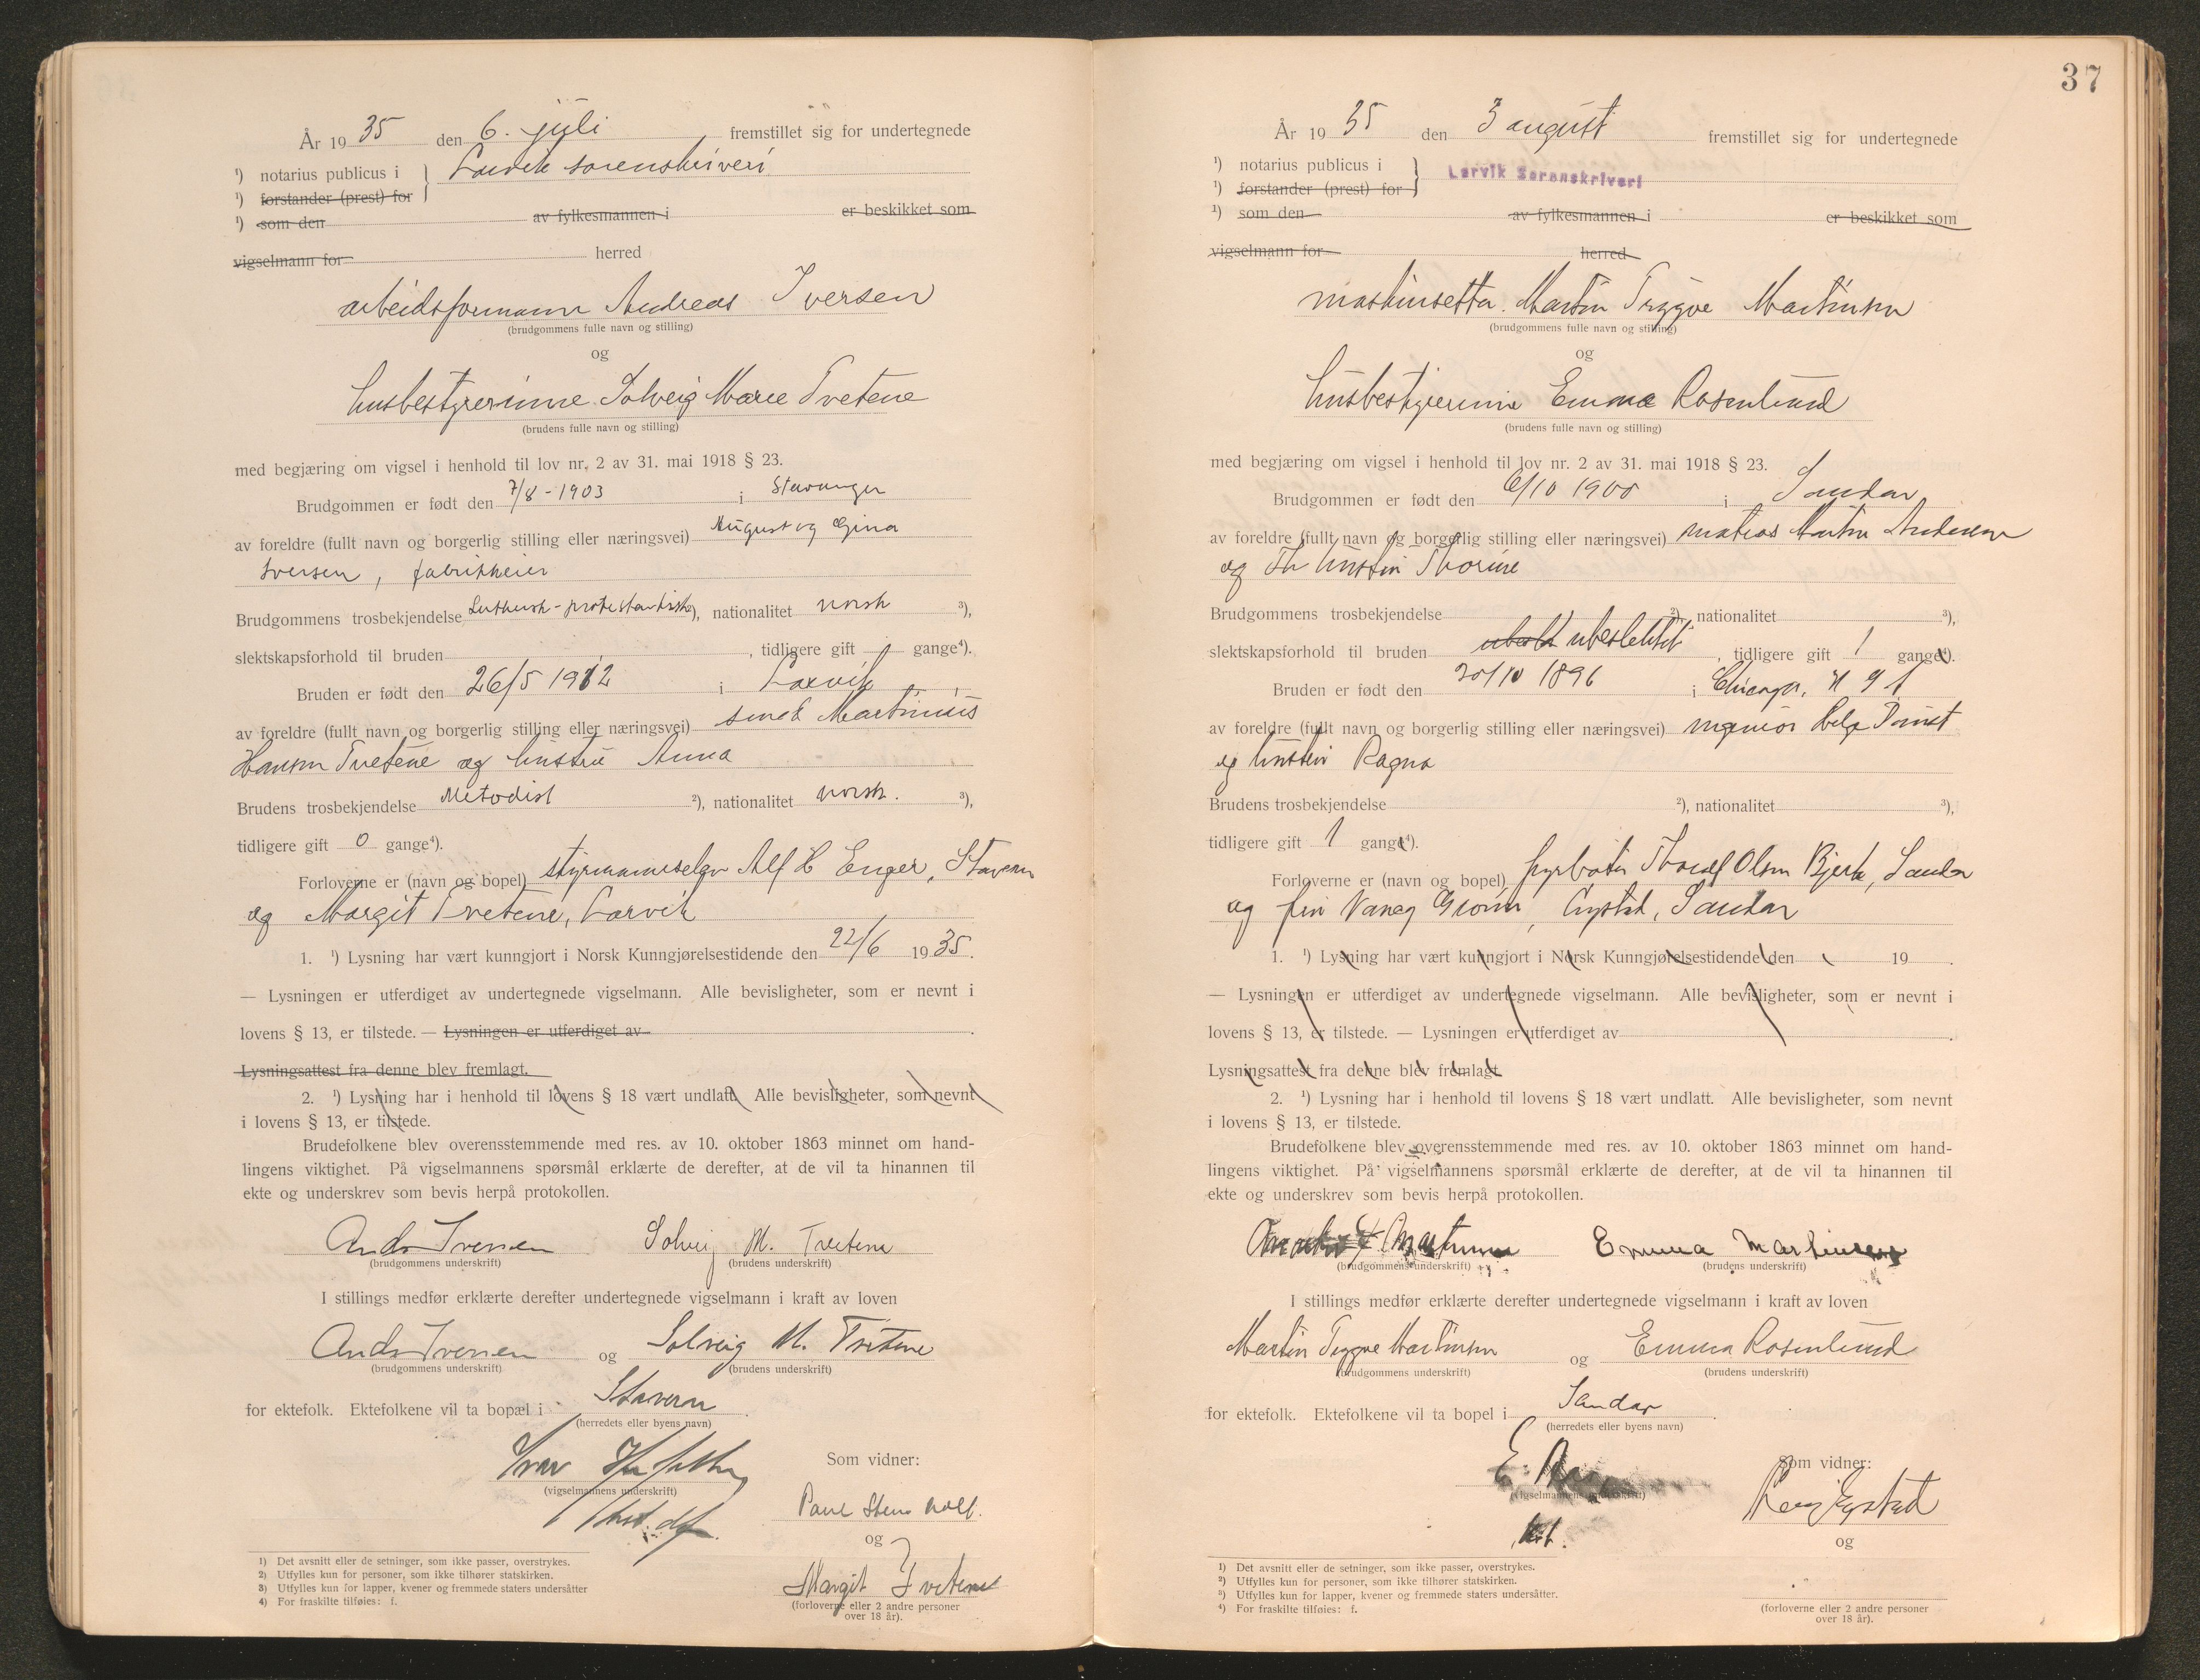 År 1935 den 6. juli fremstillet sig for undertegnede
¹) notarius publicus i } Larvik sorenskriveri
¹) forstander (prest) for
¹) som den av fylkesmannen i er beskikket som
vigselmann for herred
arbeidsformann Andreas Iversen
(brudgommens fulle navn og stilling)
og
husbestyrerinne Solveig Marie Tvetene
(brudens fulle navn og stilling)
med begjæring om vigsel i henhold til lov nr. 2 av 31. mai 1918 § 23.
Brudgommen er født den 7/8-1903 i Stavanger
av foreldre (fullt navn og borgerlig stilling eller næringsvei) August og Gina
Iversen, fabrikkeier
Brudgommens trosbekjendelse Luthersk-protestantisk ²), nationalitet norsk ³),
slektskapsforhold til bruden , tidligere gift 1 gange⁴).
Bruden er født den 26/5 1912 i Larvik
av foreldre (fullt navn og borgerlig stilling eller næringsvei) smed Martinius
Hansen Tvetene og hustru Anna
Brudens trosbekjendelse Metodist ²), nationalitet norsk. ³),
tidligere gift 0 gange⁴).
Forloverne er (navn og bopel) styrmannselev Alf H Enger, Stavern
og Margit Tvetene, Larvik
1. ¹) Lysning har vært kunngjort i Norsk Kunngjørelsestidende den 22/6 1935.
— Lysningen er utferdiget av undertegnede vigselmann. Alle bevisligheter, som er nevnt i
lovens § 13, er tilstede. — Lysningen er utferdiget av .
Lysningsattest fra denne blev fremlagt.
2. ¹) Lysning har i henhold til lovens § 18 vært undlatt. Alle bevisligheter, som nevnt
i lovens § 13, er tilstede.
Brudefolkene blev overensstemmende med res. av 10. oktober 1863 minnet om hand-
lingens viktighet. På vigselmannens spørsmål erklærte de derefter, at de vil ta hinannen til
ekte og underskrev som bevis herpå protokollen.
Andr Iversen Solveig M. Tvetene
(brudgommens underskrift) (brudens underskrift)
I stillings medfør erklærte derefter undertegnede vigselmann i kraft av loven
Andr Iversen og Solveig M. Tvetene
(brudgommens underskrift) (brudens underskrift)
for ektefolk. Ektefolkene vil ta bopæl i Stavern .
(herredets eller byens navn)
Ivar
Som vidner:
(vigselmannens underskrift)
Paul Stens
og
Margit Tvetene
(forloverne eller 2 andre personer
over 18 år).
1) Det avsnitt eller de setninger, som ikke passer, overstrykes.
2) Utfylles kun for personer, som ikke tilhører statskirken.
3) Utfylles kun for lapper, kvener og fremmede staters undersåtter
4) For fraskilte tilføies: f.
37
År 1935 den 3 august fremstillet sig for undertegnede
¹) notarius publicus i } Larvik Sorenskriveri
¹) forstander (prest) for
¹) som den av fylkesmannen i er beskikket som
vigselmann for herred
maskinsetter Martin Trygve Martinsen
(brudgommens fulle navn og stilling)
og
husbestyrerinne Emma Rosenlund
(brudens fulle navn og stilling)
med begjæring om vigsel i henhold til lov nr. 2 av 31. mai 1918 § 23.
Brudgommen er født den 6/10 1900 i Sandar
av foreldre (fullt navn og borgerlig stilling eller næringsvei) Martin Andersen
og hustru Thorine
Brudgommens trosbekjendelse ²), nationalitet ³),
slektskapsforhold til bruden ubeslektet , tidligere gift 1 gange⁴).
Bruden er født den 30/10 1896 i Chicago,
av foreldre (fullt navn og borgerlig stilling eller næringsvei) Helge
og hustru Ragna
Brudens trosbekjendelse ²), nationalitet ³),
tidligere gift 1 gange⁴).
Forloverne er (navn og bopel) fyrbøter Thoralf Olsen Bjerke, Sandar
og fru Nancy Sandar
1. ¹) Lysning har vært kunngjort i Norsk Kunngjørelsestidende den 19 .
— Lysningen er utferdiget av undertegnede vigselmann. Alle bevisligheter, som er nevnt i
lovens § 13, er tilstede. — Lysningen er utferdiget av .
Lysningsattest fra denne blev fremlagt.
2. ¹) Lysning har i henhold til lovens § 18 vært undlatt. Alle bevisligheter, som nevnt
i lovens § 13, er tilstede.
Brudefolkene blev overensstemmende med res. av 10. oktober 1863 minnet om hand-
lingens viktighet. På vigselmannens spørsmål erklærte de derefter, at de vil ta hinannen til
ekte og underskrev som bevis herpå protokollen.
Martinsen Emma Martinsen
(brudgommens underskrift) (brudens underskrift)
I stillings medfør erklærte derefter undertegnede vigselmann i kraft av loven
Martin Trygve Martinsen og Emma Rosenlund
(brudgommens underskrift) (brudens underskrift)
for ektefolk. Ektefolkene vil ta bopel i Sandar .
(herredets eller byens navn)
E.
Som vidner:
(vigselmannens underskrift)
og
(forloverne eller 2 andre personer
over 18 år).
¹) Det avsnitt eller de setninger, som ikke passer, overstrykes.
²) Utfylles kun for personer, som ikke tilhører statskirken.
³) Utfylles kun for lapper, kvener og fremmede staters undersåtter.
⁴) For fraskilte tilføies: f.